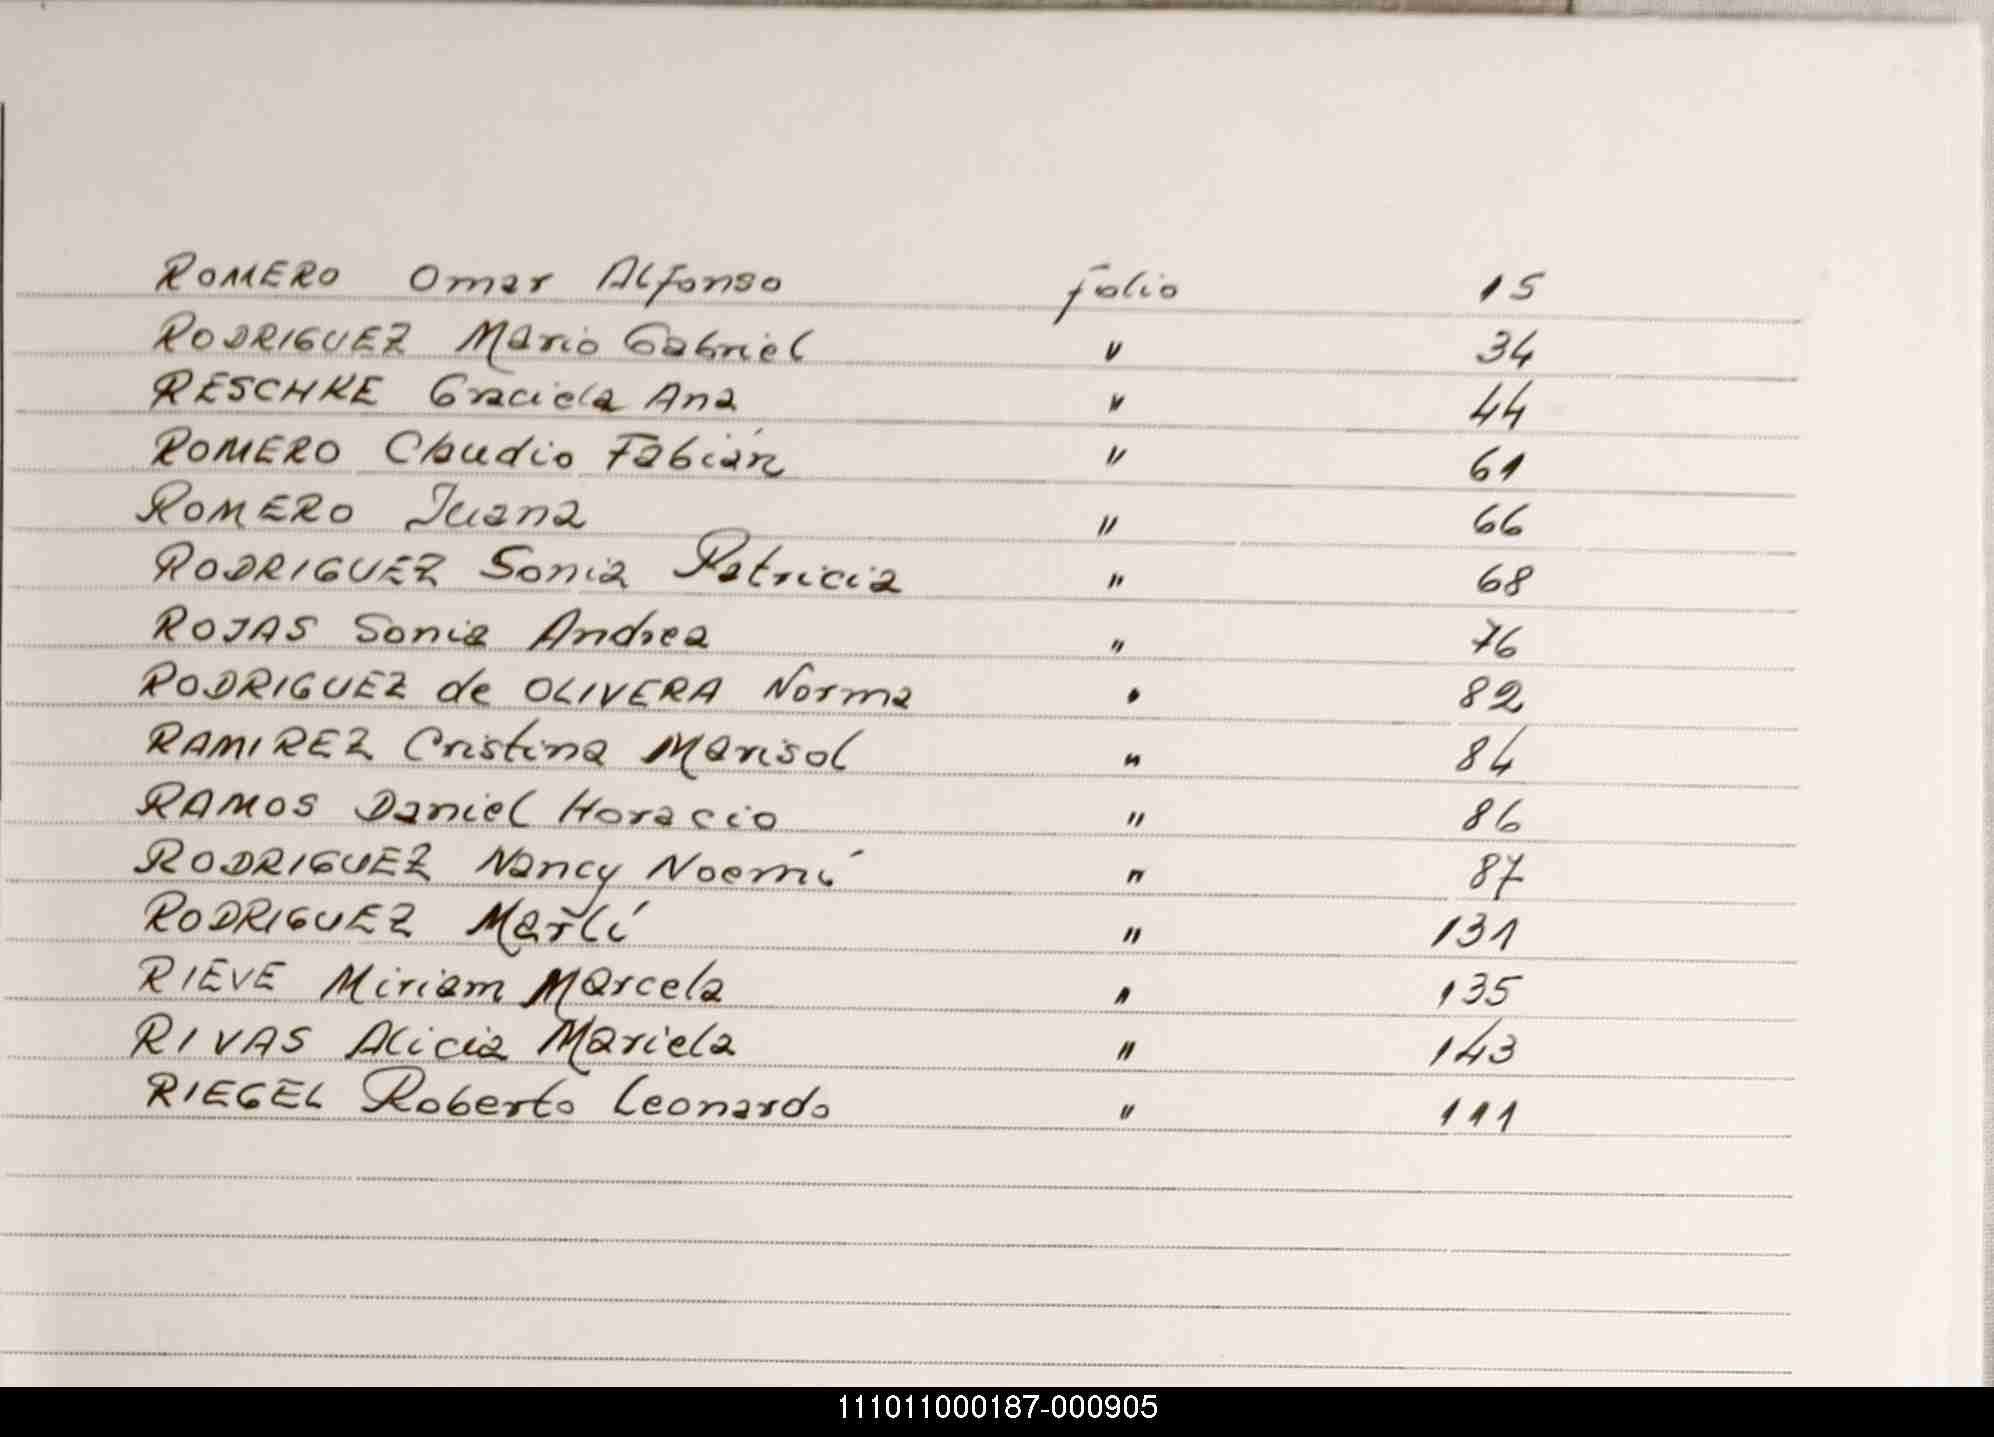 ROMERO Omar Alfonso folio 15
RODRIGUEZ Mario Gabriel " 34
RESCHKE Graciela Ana " 44
ROMERO Claudio Fabián " 61
ROMERO Juana " 66
RODRIGUEZ Sonia Patricia " 68
ROJAS Sonia Andrea " 76
RODRIGUEZ de OLIVERA Norma " 82
RAMIREZ Cristina Marisol " 84
RAMOS Daniel Horacio " 86
RODRIGUEZ Nancy Noemí " 87
RODRIGUEZ Marlí " 131
RIEVE Miriam Marcela " 135
RIVAS Alicia Mariela " 143
RIEGEL Roberto Leonardo " 111
111011000187-000905